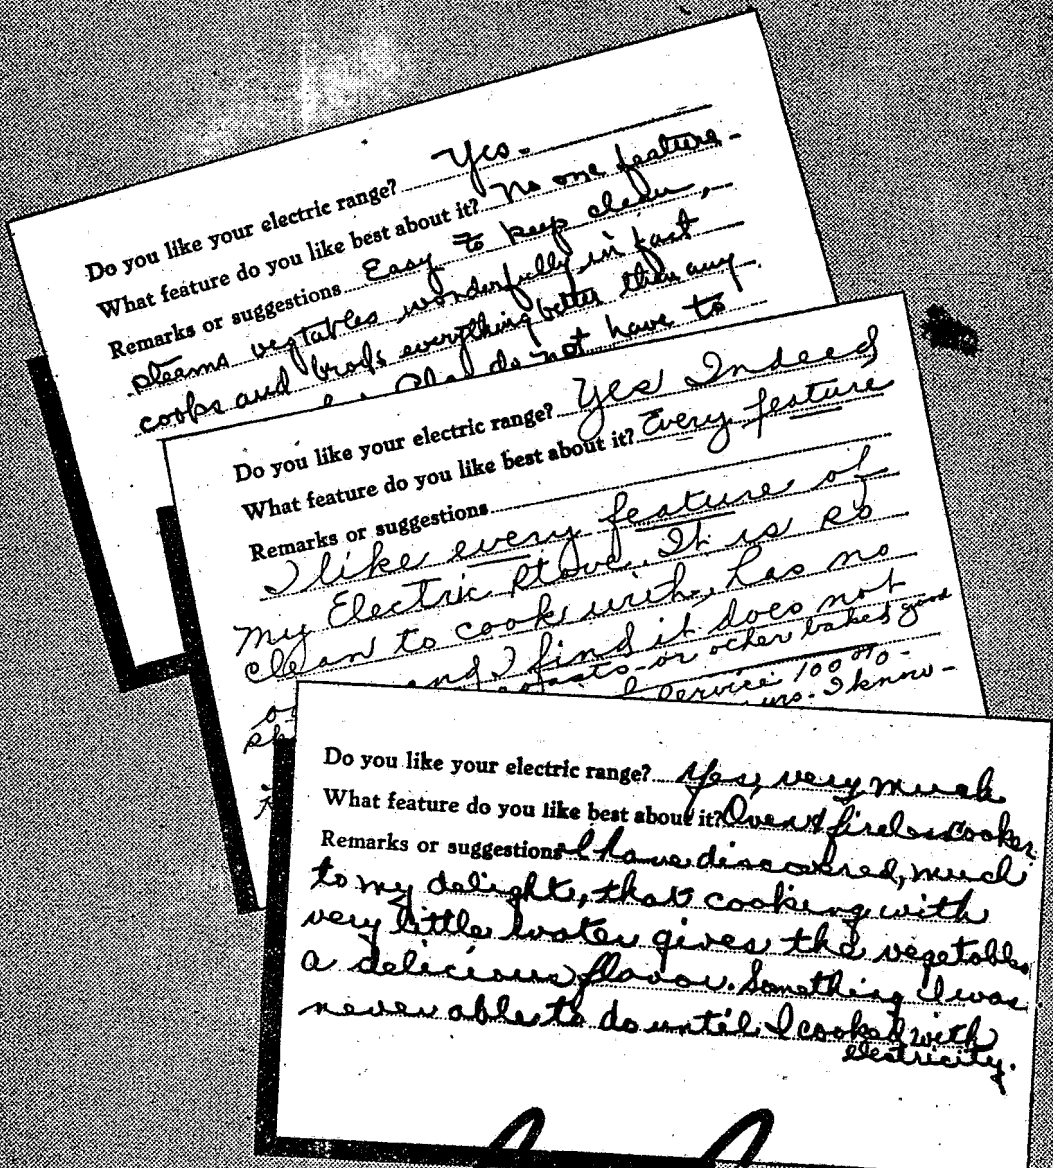 Do you like your electric range? Yes-
What feature do you like best about it? No one feature-
Remarks or suggestions Easy to keep clean,
steams vegtables wonderfully, in fact
cooks and broils everything better than any
Also do not have to
Do you like your electric range? Yes Indeed
What feature do you like best about it? Every feature
Remarks or suggestions
I like every feature of
my Electric Stove. It is so
clean to cook with, has no
and I find it does not
roasts or other baked good
Service 100%-
I know-
Do you like your electric range? Yes, very much
What feature do you like best about it? Oven & fireless cooker
Remarks or suggestions I have discovered, much
to my delight, that cooking with
very little water gives the vegetables
a delicious flavor. Something I was
never able to do until I cooked with
electricity.